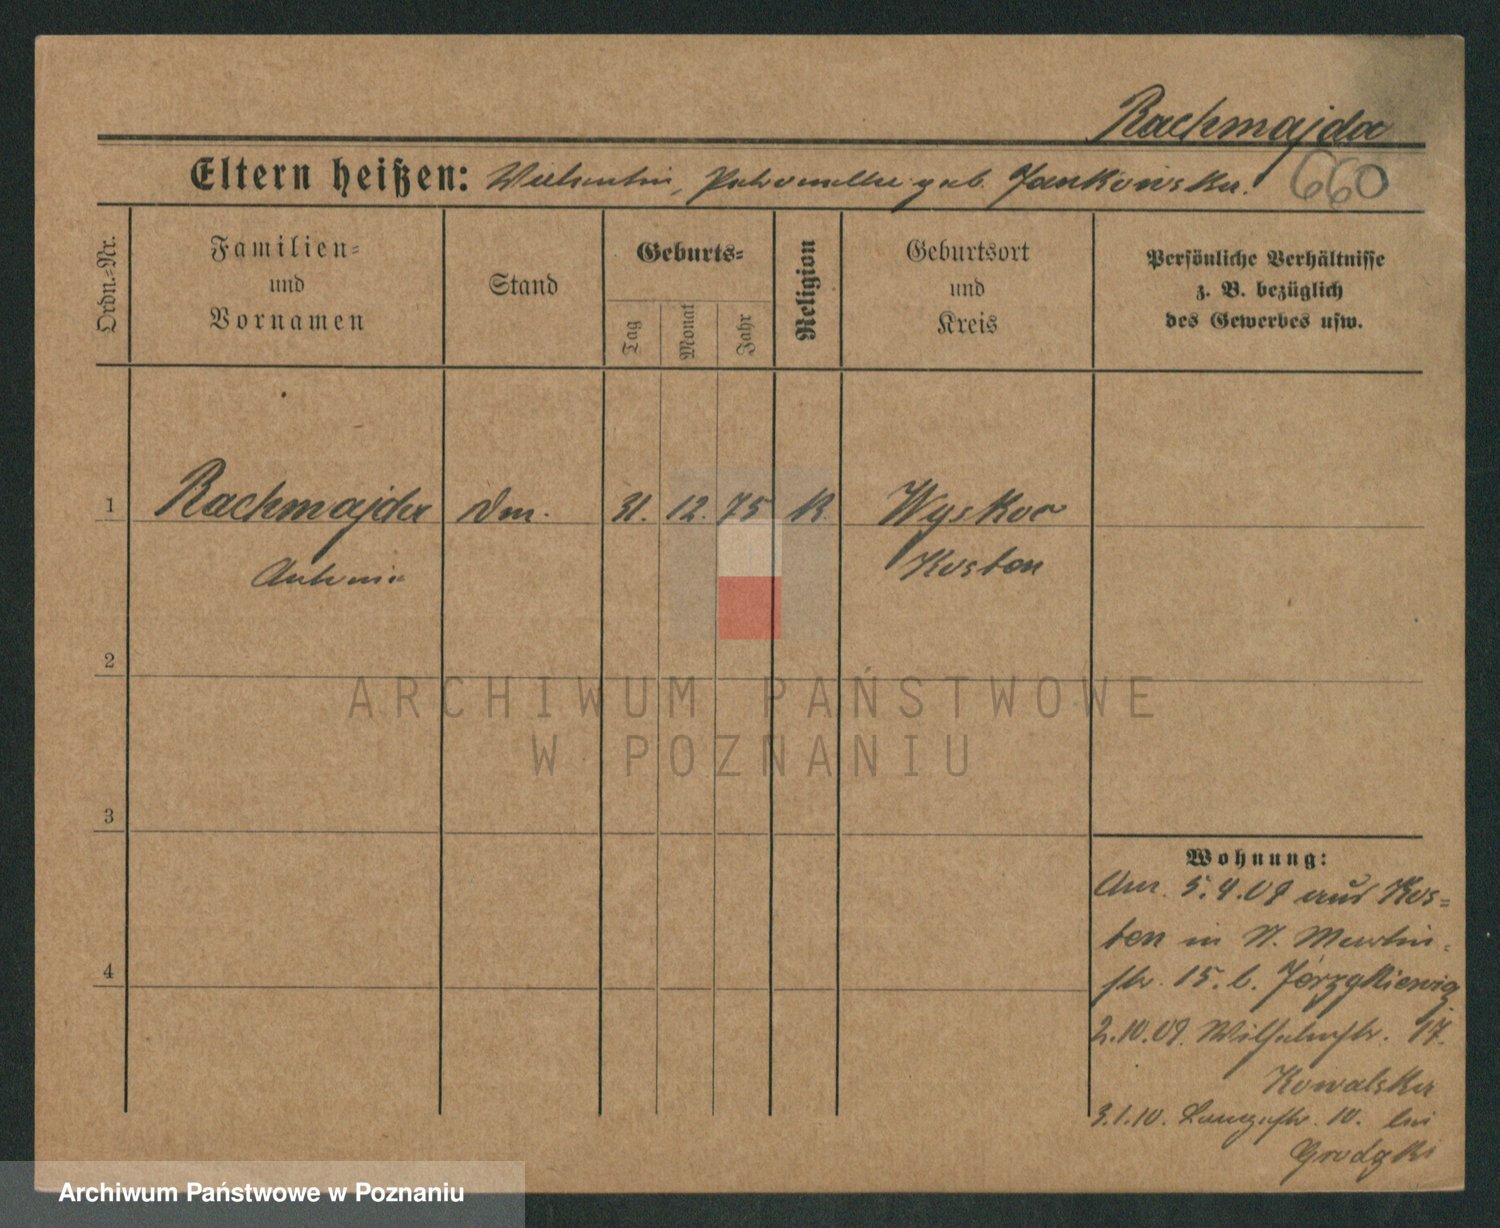 Rachmajda
Eltern heißen: Valentin, Petronella geb. Jankowska.
660
Ordn.=Nr.
Familien=
und
Vornamen
Stand
Geburts=
Tag
Monat
Jahr
Religion
Geburtsort
und
Kreis
Persönliche Verhältnisse
z. B. bezüglich
des Gewerbes usw.
1
Rachmajda
Antonie
31. 12. 75
K.
Wyskoc
Kosten
2
3
4
Wohnung:
5.4.09 aus Kos=
ten in St. Martin=
str. 15. b.
2.10.09. Wilhelmstr. 17.
Kowalska
3.1.10. Langestr. 10. bei
Grodzki
ARCHIWUM PAŃSTWOWE
W POZNANIU
Archiwum Państwowe w Poznaniu